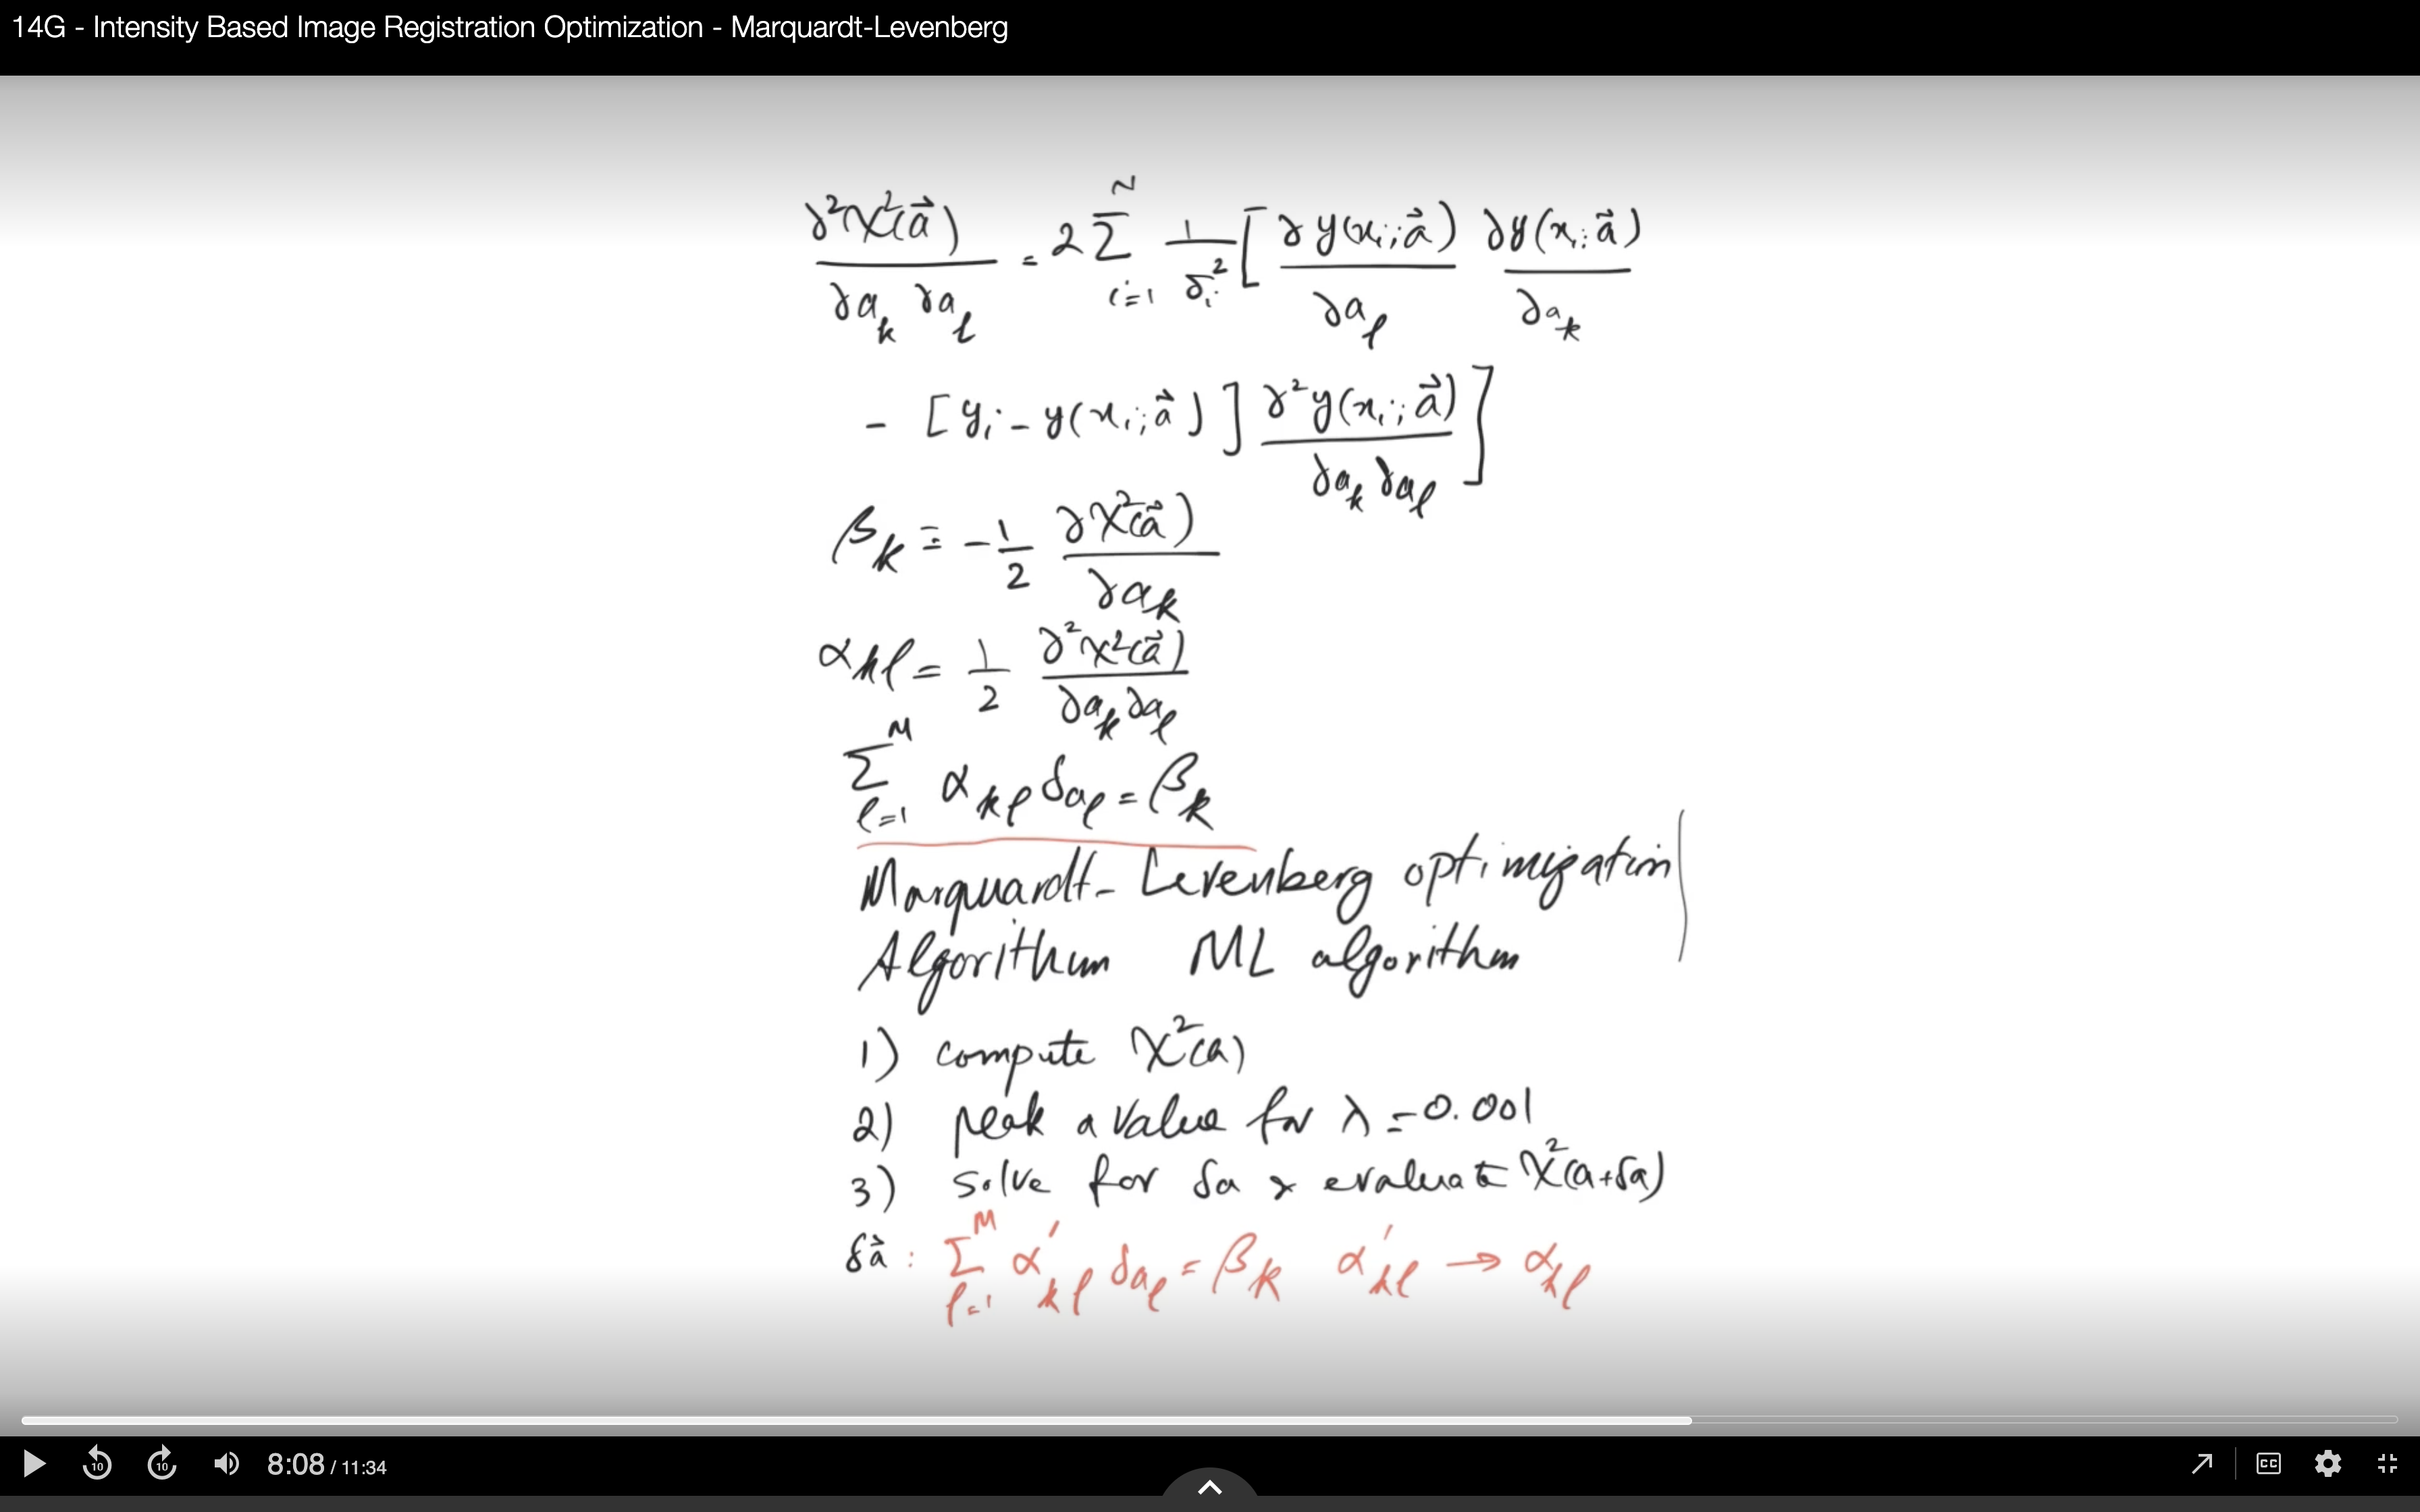 14G - Intensity Based Image Registration Optimization - Marquardt-Levenberg
∂²χ²(a⃗) / ∂a_k ∂a_l = 2 Σ_{i=1}^{N} 1/σ_i² [ ∂y(x_i; a⃗)/∂a_l ∂y(x_i; a⃗)/∂a_k
- [y_i - y(x_i; a⃗)] ∂²y(x_i; a⃗)/∂a_k ∂a_l ]
β_k ≡ -1/2 ∂χ²(a⃗)/∂a_k
α_kl = 1/2 ∂²χ²(a⃗)/∂a_k ∂a_l
Σ_{l=1}^{M} α_kl δa_l = β_k
Marquardt-Levenberg optimization
Algorithm ML algorithm
1) compute χ²(a)
2) peak a value for λ = 0.001
3) solve for δa & evaluate χ²(a+δa)
δa⃗ : Σ_{l=1}^{M} α'_kl δa_l = β_k α'_kl → α_kl
10 10 8:08 / 11:34 CC